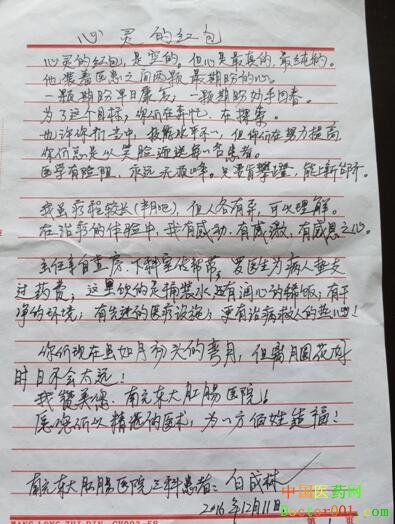 心灵的红包
心灵的红包，是空的，但心是最真的，最纯的。
他装着医患之间两颗最期盼的心。
一颗期盼早日康复，一颗期盼妙手回春。
为了这个目标，你们在奔忙，在探索。
也许你们当中，技术水平不一，但你们在努力提高
你们总是以笑脸迎送每一名患者。
医学有险阻，永远无顶峰。只要肯攀登，能上新台阶。
我虽疗程较长(半月吧)，但人各有异，可以理解。
在治疗的体验中，我有感动，有感激，有感恩之心。
主任亲自查房，下科室做帮带，医生为病人垫支
过药费，这里饮的是桶装水还有润心的稀饭；有干
净的环境；有先进的医疗设施；更有治病救人的热心！
你们现在虽如月初头的弯月，但离月圆花好
时日不会太远！
我赞美您，南京东大肛肠医院！
愿您们以精湛的医术，为一方百姓造福！
南京东大肛肠医院三科患者：白成林
2016年12月11日
中国医药网
Doctor001.com